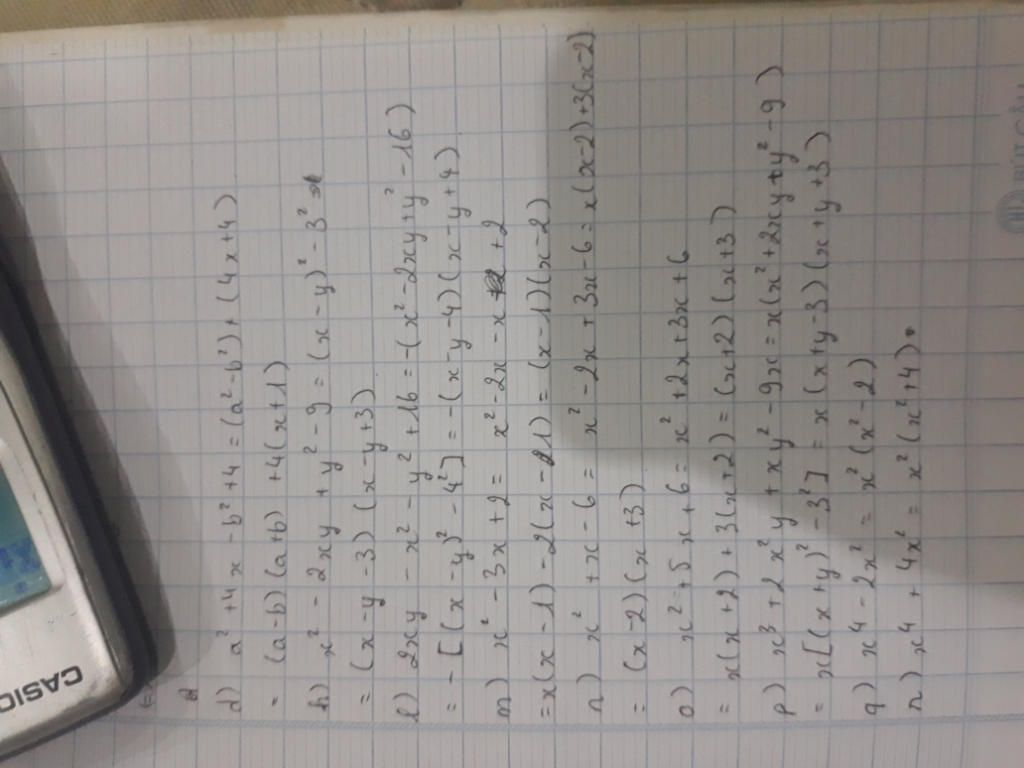 d) a² + 4x - b² + 4 = (a² - b²) + (4x + 4)
= (a - b) (a + b) + 4(x + 1)
h) x² - 2xy + y² - 9 = (x - y)² - 3²
= (x - y - 3) (x - y + 3)
l) 2xy - x² - y² + 16 = -(x² - 2xy + y² - 16)
= - [(x - y)² - 4²] = -(x - y - 4) (x - y + 4)
m) x² - 3x + 2 = x² - 2x - x + 2
= x(x - 1) - 2(x - 1) = (x - 1)(x - 2)
n) x² + x - 6 = x² - 2x + 3x - 6 = x(x - 2) + 3(x - 2)
= (x - 2) (x + 3)
o) x² + 5x + 6 = x² + 2x + 3x + 6
= x(x + 2) + 3(x + 2) = (x + 2) (x + 3)
p) x³ + 2x²y + xy² - 9x = x(x² + 2xy + y² - 9)
= x[(x + y)² - 3²] = x(x + y - 3) (x + y + 3)
q) x⁴ - 2x² = x² (x² - 2)
r) x⁴ + 4x² = x² (x² + 4).
CASIO